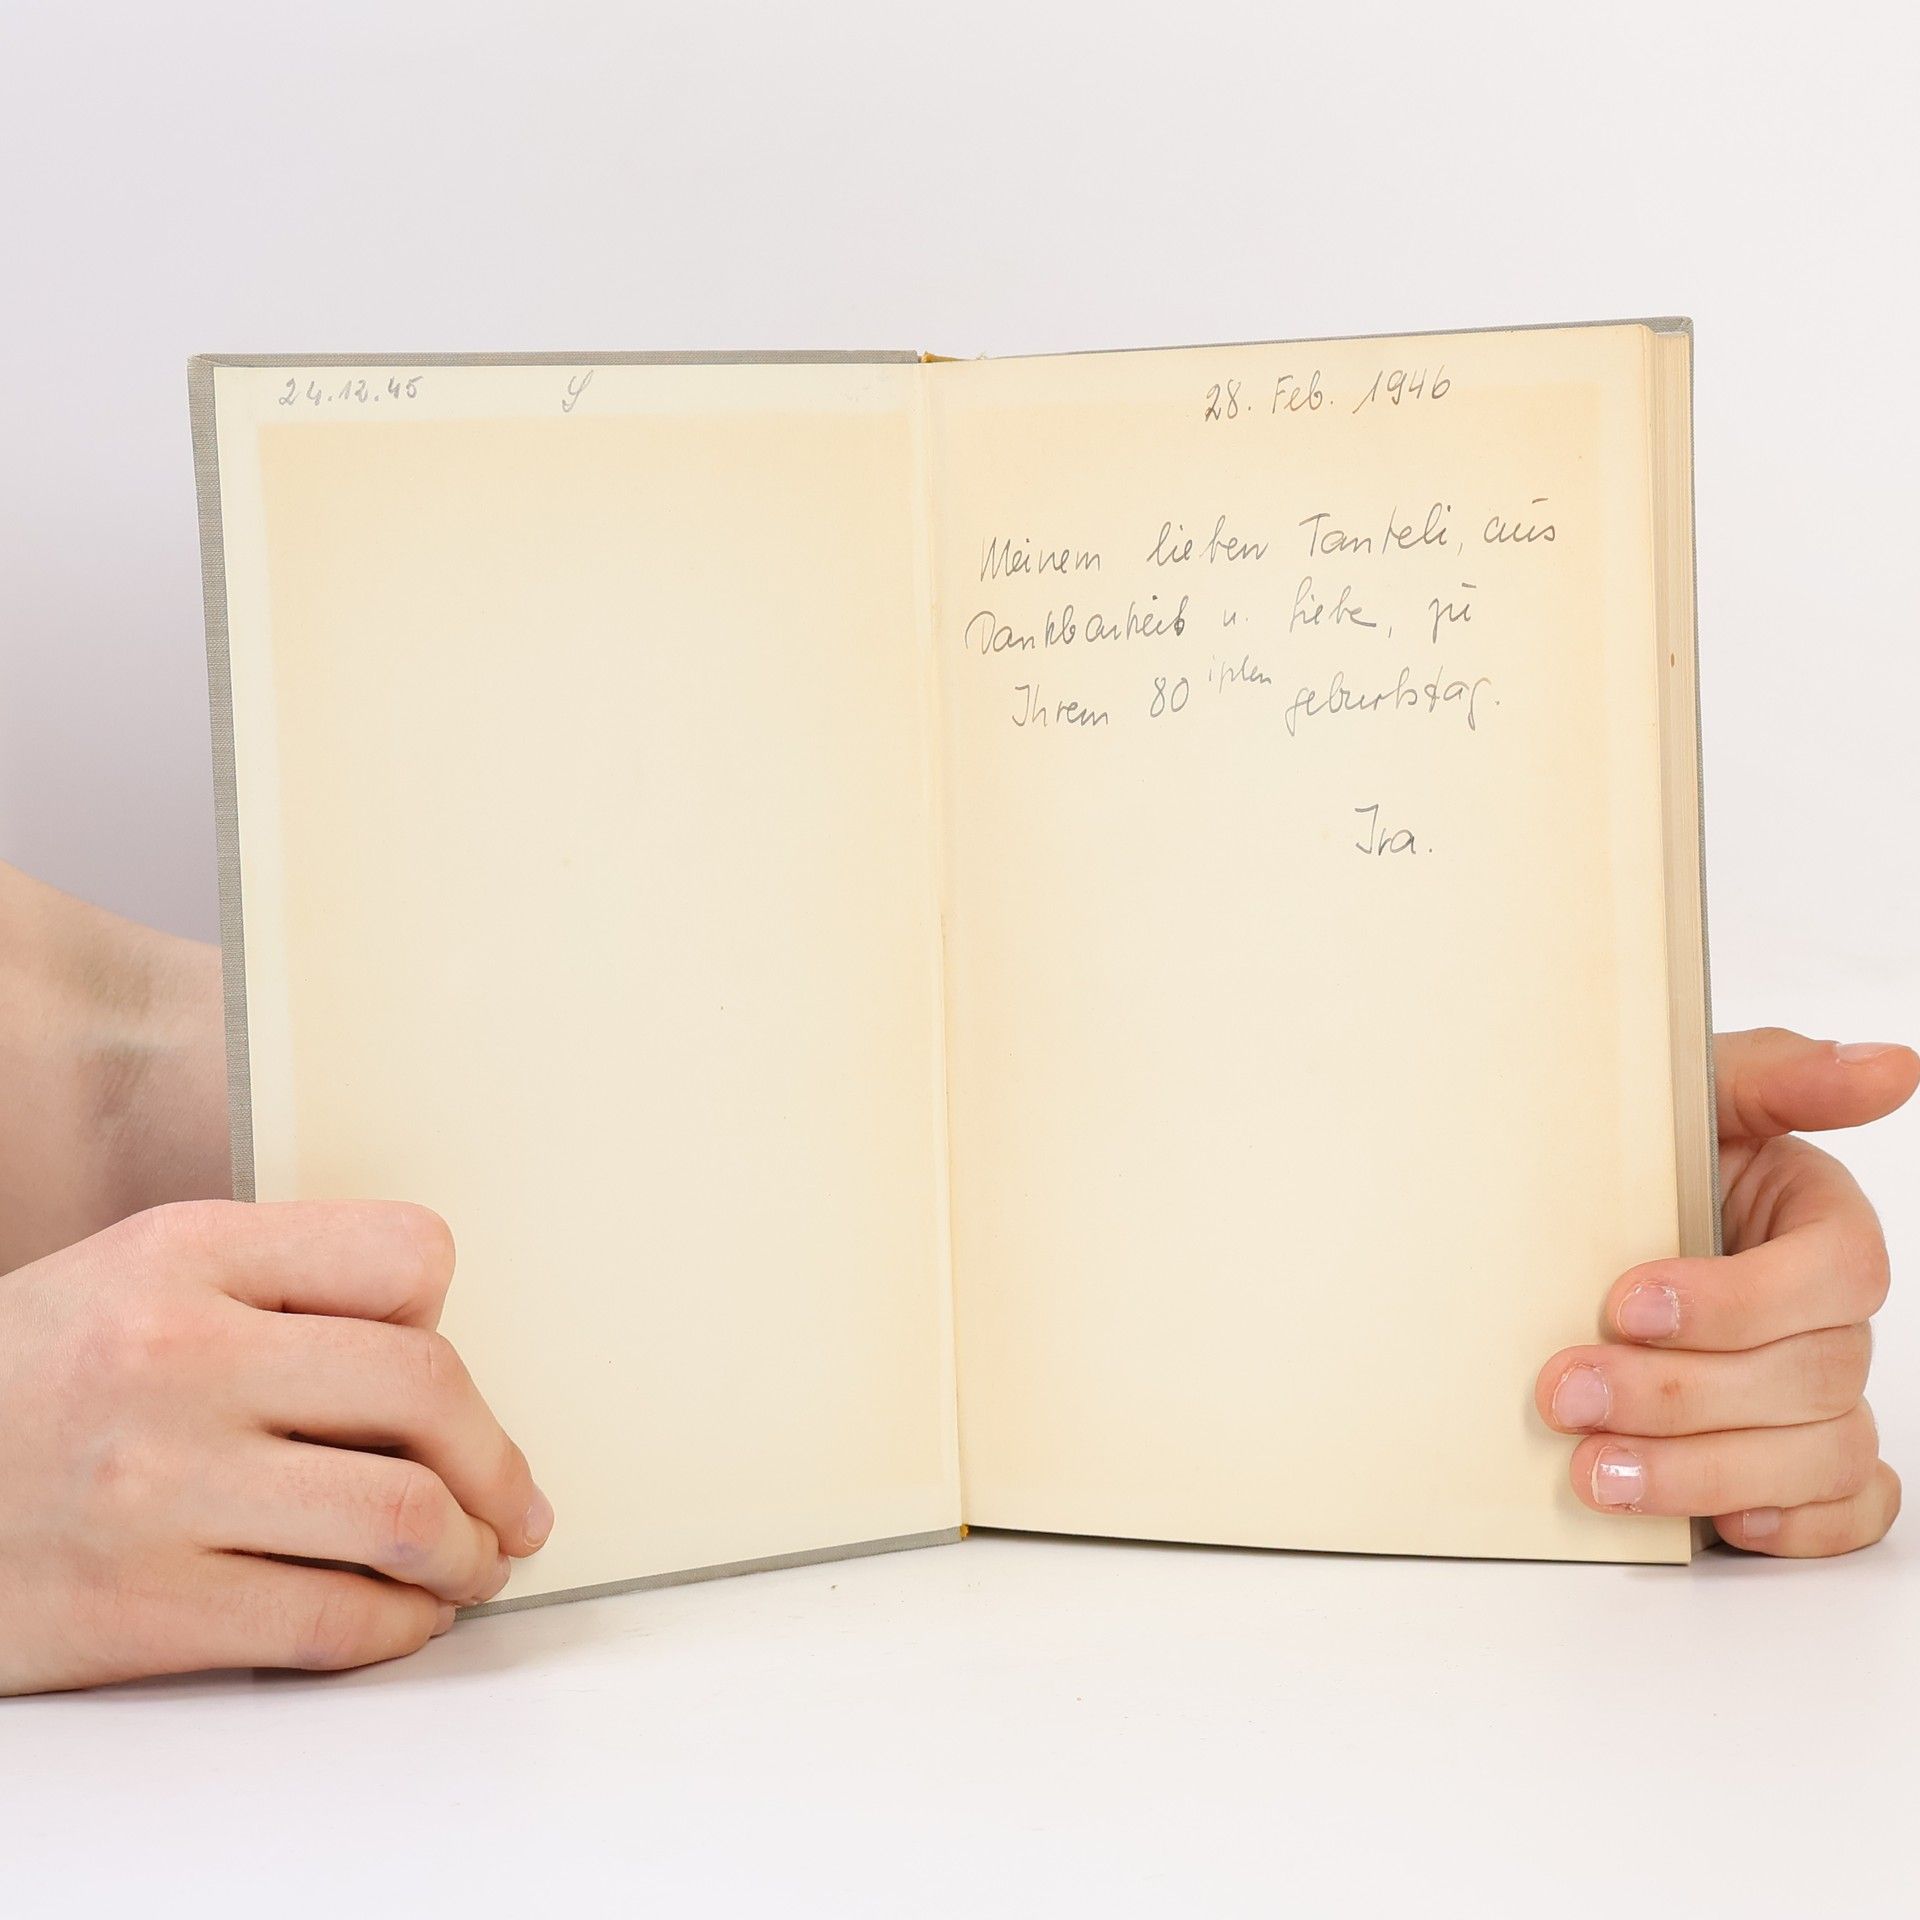 24.12.45
28. Feb. 1946
Meinem lieben Tanteli, aus
Dankbarkeit u. Liebe, zu
Ihrem 80 geburtstag.
Ira.